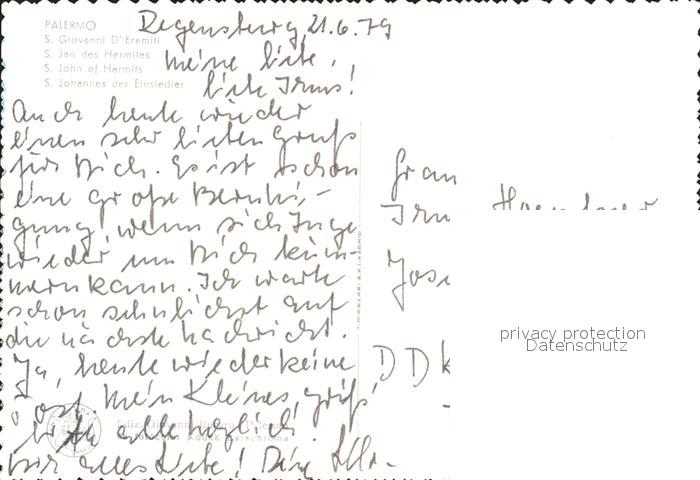 PALERMO
S. Giovanni D'Eremiti
S. Jan des Hermites
S. John of Hermits
S. Johannes der Einsiedler
Regensburg, 21.6.79
Meine liebe,
liebe Irms!
Auch heute wieder
einen sehr lieben Gruß
für Dich. Es ist schon
eine große Beruhi-
gung, wenn sich Inge
wieder um Dich küm-
mern kann. Ich warte
schon sehnlichst auf
die nächste Nachricht.
Ja, heute wieder keine
Post, mein Kleines, grüß
alle herzlich,
Dir alles Liebe! Deine
Frau
privacy protection
Datenschutz
DDR